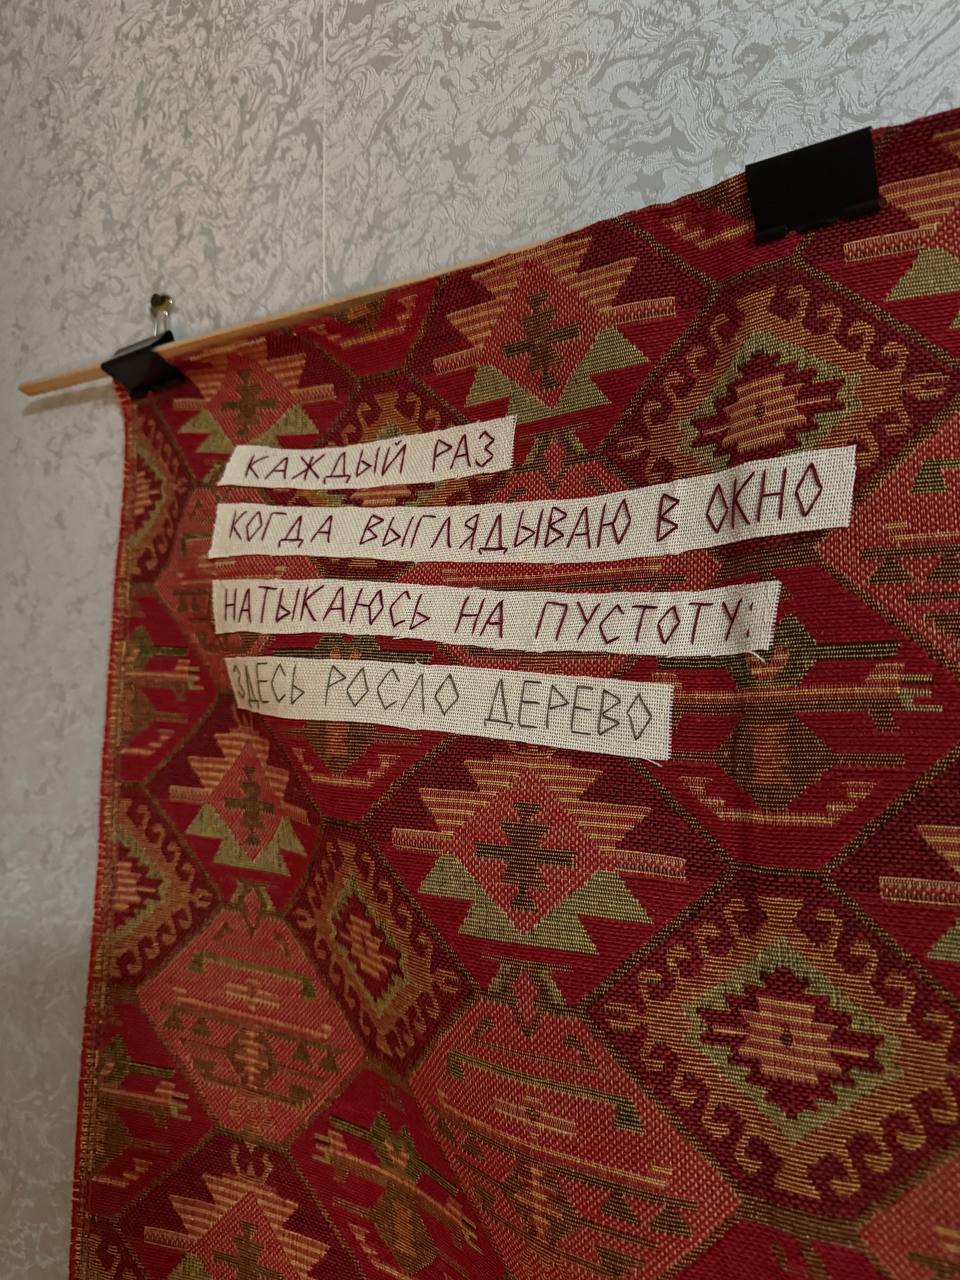 КАЖДЫЙ РАЗ
КОГДА ВЫГЛЯДЫВАЮ В ОКНО
НАТЫКАЮСЬ НА ПУСТОТУ:
ЗДЕСЬ РОСЛО ДЕРЕВО